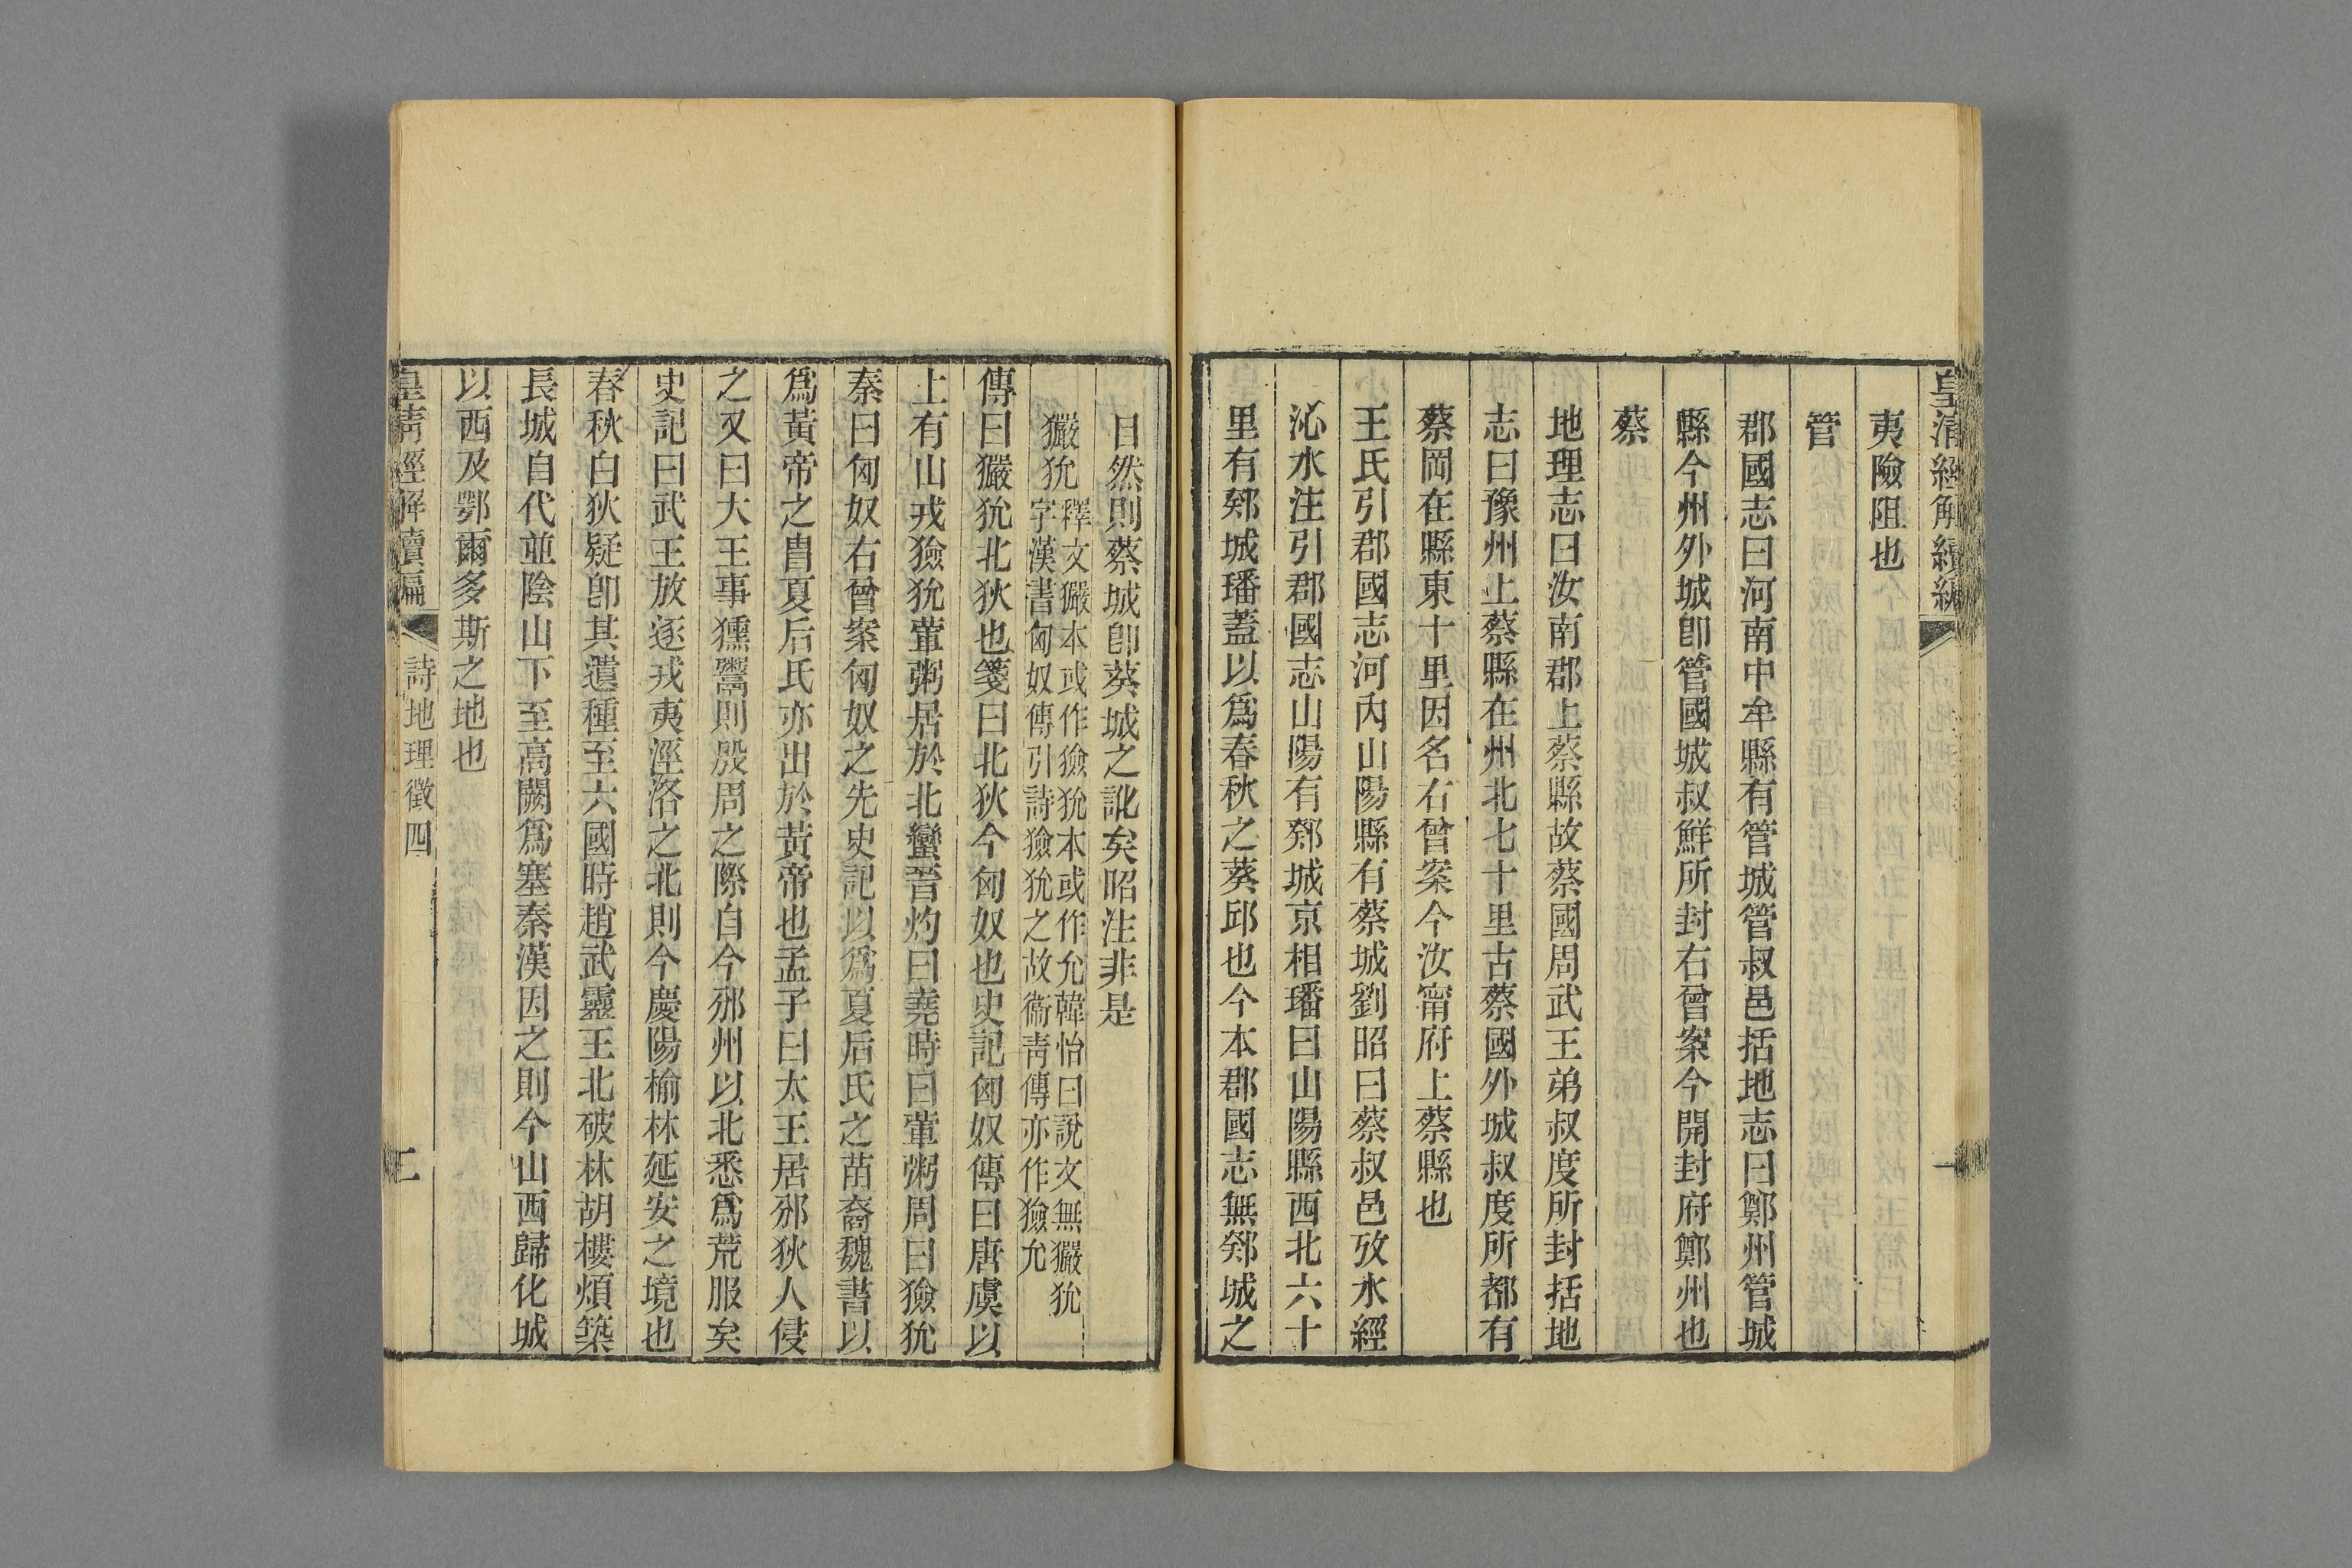 皇清經解續編
夷險阻也
管
郡國志曰河南中牟縣有管城管叔邑括地志曰鄭州管城
縣今州外城卽管國城叔鮮所封右曾案今開封府鄭州也
蔡
地理志曰汝南郡上蔡縣故蔡國周武王弟叔度所封括地
志曰豫州上蔡縣在州北七十里古蔡國外城叔度所都有
蔡岡在縣東十里因名右曾案今汝甯府上蔡縣也
王氏引郡國志河內山陽縣有蔡城劉昭曰蔡叔邑攷水經
沁水注引郡國志山陽有鄈城京相璠曰山陽縣西北六十
里有鄈城璠蓋以爲春秋之葵邱也今本郡國志無鄈城之
目然則蔡城卽葵城之訛矣昭注非是
玁狁釋文玁本或作獫狁本或作允韓怡曰說文無玁狁
字漢書匈奴傳引詩獫狁之故衞靑傳亦作獫允
傳曰玁狁北狄也箋曰北狄今匈奴也史記匈奴傳曰唐虞以
上有山戎獫狁葷粥居於北蠻晉灼曰堯時曰葷粥周曰獫狁
秦曰匈奴右曾案匈奴之先史記以爲夏后氏之苗裔魏書以
爲黃帝之胄夏后氏亦出於黃帝也孟子曰太王居邠狄人侵
之又曰大王事獯鬻則殷周之際自今邠州以北悉爲荒服矣
史記曰武王放逐戎夷涇洛之北則今慶陽榆林延安之境也
春秋白狄疑卽其遺種至六國時趙武靈王北破林胡樓煩築
長城自代並陰山下至高闕爲塞秦漢因之則今山西歸化城
以西及鄂爾多斯之地也
皇清經解續編
詩地理徵四
二